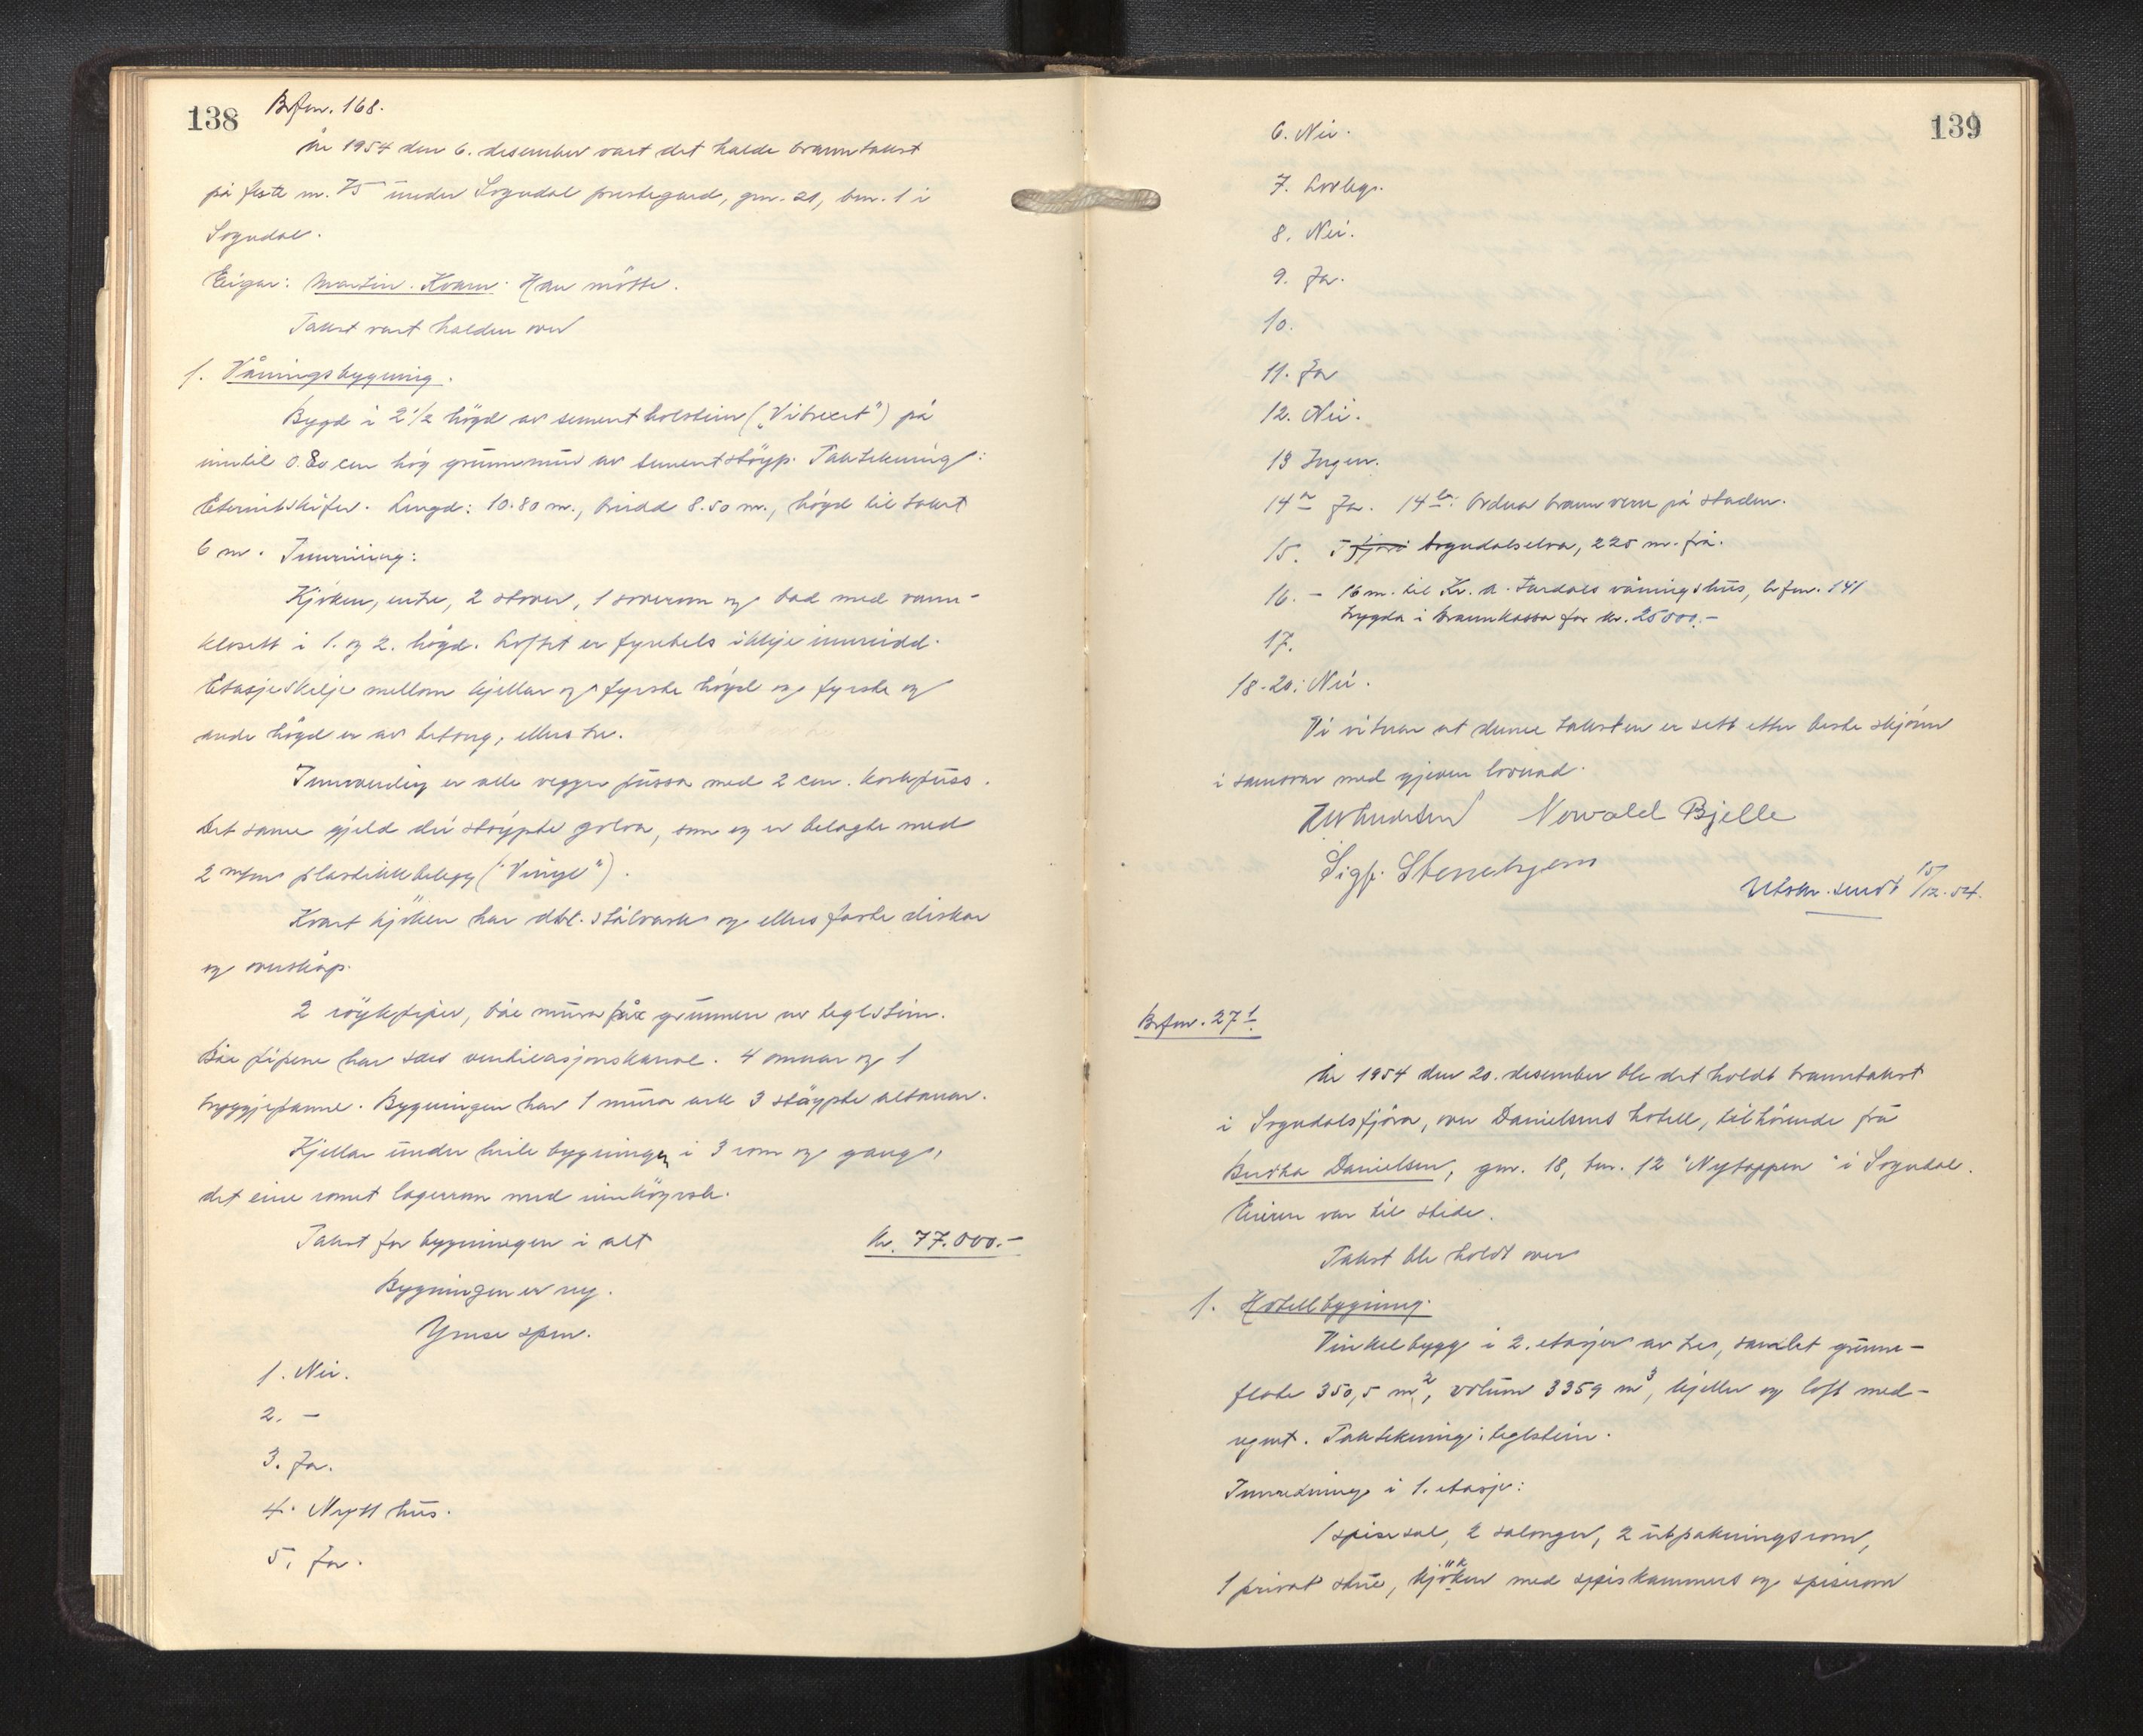 138
Brfnr. 168.
År 1954 den 6. desember vart det halde branntakst
på feste nr. 75 under Sogndal prestegard, gnr. 21, bnr. 1 i
Sogndal.
Eigar: Martin Kvam. Han møtte.
Takst vart halden over
1. Våningsbygning.
Bygd i 2 1/2 högd av sement holstein („Vibrect") på
inntil 0.80 cm høg grunnmur av sementstöyp. Taktekning:
Eternitskifer. Lengd: 10.80 m., breidd 8.50 m., högd til takst
6 m. Innreiing:
Kjöken, entre, 2 stover, 1 soverom og bad med vann-
klosett i 1. og 2. högd. Loftet er fyrebels ikkje innreidd.
Etasjeskilje mellom kjellar og fyrste högd og fyrste og
andre högd er av betong, ellers tre.
Innvendig er alle vegger pussa med 2 cm. korkpuss.
Det same gjeld dei stöypte golva, som og er belagte med
2 m/m plastikkbelegg ("Vinyl").
Kvart kjöken har dbl. stålvask og ellers faste diskar
og overskåp.
2 röykpiper, båe mura frå grunnen av teglstein.
Båe pipene har sers ventilasjonskanal. 4 omnar og 1
bryggjepanne. Bygningen har 1 mura ark 3 stöypte altanar.
Kjellar under heile bygningen i 3 rom og gang,
det eine romet lagerrom med innköyrsle.
Takst for bygningen i alt kr. 77.000.-
Bygningen er ny.
Ymse spm.
1. Nei.
2. -
3. Ja.
4. Nytt hus.
5. Ja.
139
6. Nei.
7. Lovleg.
8. Nei.
9. Ja.
10.
11. Ja
12. Nei.
13 Ingen.
14 a Ja. 14 b. Ordna brannvern på staden.
15. I fjøri Sogndalselva, 225 m. frå.
16. - 16 m. til Kr. A. Furdals våningshus, brfnr. 141
trygda i brannkassa for kr. 25000.-
17.
18-20: Nei.
Vi vitnar at denne taksten er sett etter beste skjönn
i samsvar med gjeven lovnad.
Nervald Bjelle
Sigf. Stenehjem
Utskr. sendt 15/12.54.
Brfnr. 271.
År 1954 den 20. desember ble det holdt branntakst
i Sogndalsfjöra, over Danielsens hotell, tilhörende frå
Bertha Danielsen, gnr. 18, bnr. 12 "Nytoppen" i Sogndal.
Eieren var til stede.
Takst ble holdt over
1. Hotellbygning.
Vinkelbygg i 2. etasjer av tre, samlet grunn-
flate 350,5 m2, volum 3359 m3, kjeller og loft med-
regnet. Taktekning: teglstein.
Innredning i 1. etasje:
1 spisesal, 2 salonger, 2 utpakningsrom,
1 privat stue, kjöken med spiskammers og spiserom